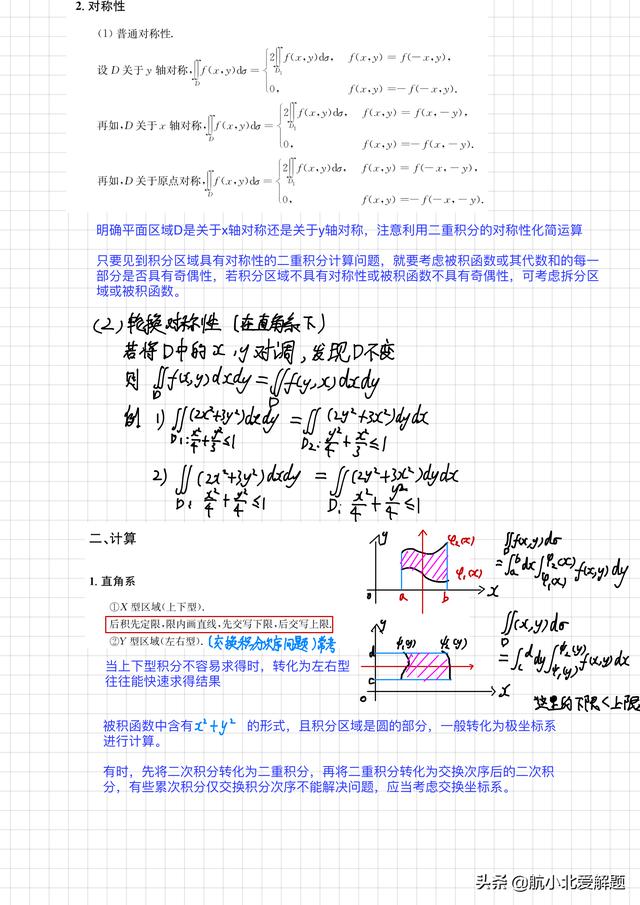 2. 对称性
(1) 普通对称性.
设 D 关于 y 轴对称,∬_D f(x,y)dσ = { 2∬_{D₁} f(x,y)dσ, f(x,y) = f(-x,y),
0, f(x,y) = -f(-x,y).
再如,D 关于 x 轴对称,∬_D f(x,y)dσ = { 2∬_{D₁} f(x,y)dσ, f(x,y) = f(x,-y),
0, f(x,y) = -f(x,-y).
再如,D 关于原点对称,∬_D f(x,y)dσ = { 2∬_{D₁} f(x,y)dσ, f(x,y) = f(-x,-y),
0, f(x,y) = -f(-x,-y).
明确平面区域D是关于x轴对称还是关于y轴对称，注意利用二重积分的对称性化简运算
只要见到积分区域具有对称性的二重积分计算问题，就要考虑被积函数或其代数和的每一
部分是否具有奇偶性，若积分区域不具有对称性或被积函数不具有奇偶性，可考虑拆分区
域或被积函数。
(2) 轮换对称性 (在直角系下)
若将D中的 x, y 对调, 发现D不变
则 ∬_D f(x,y)dxdy = ∬_D f(y,x)dxdy
例 1) ∬ (2x²+3y²)dxdy = ∬ (2y²+3x²)dydx
D₁: x²/4 + y²/3 ≤ 1 D₂: y²/4 + x²/3 ≤ 1
2) ∬ (2x²+3y²)dxdy = ∬ (2y²+3x²)dydx
D: x²/4 + y²/4 ≤ 1 D: x²/4 + y²/4 ≤ 1
二、计算
y φ₂(x)
φ₁(x)
0 a b x
∬_D f(x,y)dσ
= ∫_a^b dx ∫_{φ₁(x)}^{φ₂(x)} f(x,y)dy
1. 直角系
①X 型区域(上下型).
后积先定限,限内画直线,先交写下限,后交写上限.
②Y 型区域(左右型). (交换积分次序问题) 常考
当上下型积分不容易求得时，转化为左右型
往往能快速求得结果
y ψ₁(y) ψ₂(y)
d
c
0 x
∬_D (x,y)dσ
= ∫_c^d dy ∫_{ψ₁(y)}^{ψ₂(y)} f(x,y)dx
这里的下限<上限
被积函数中含有 x²+y² 的形式，且积分区域是圆的部分，一般转化为极坐标系
进行计算。
有时，先将二次积分转化为二重积分，再将二重积分转化为交换次序后的二次积
分，有些累次积分仅交换积分次序不能解决问题，应当考虑交换坐标系。
头条 @航小北爱解题